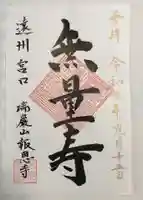 奉拝 令和 年 月十 日
無量寿
遠州 宮口
瑞巌山報恩寺